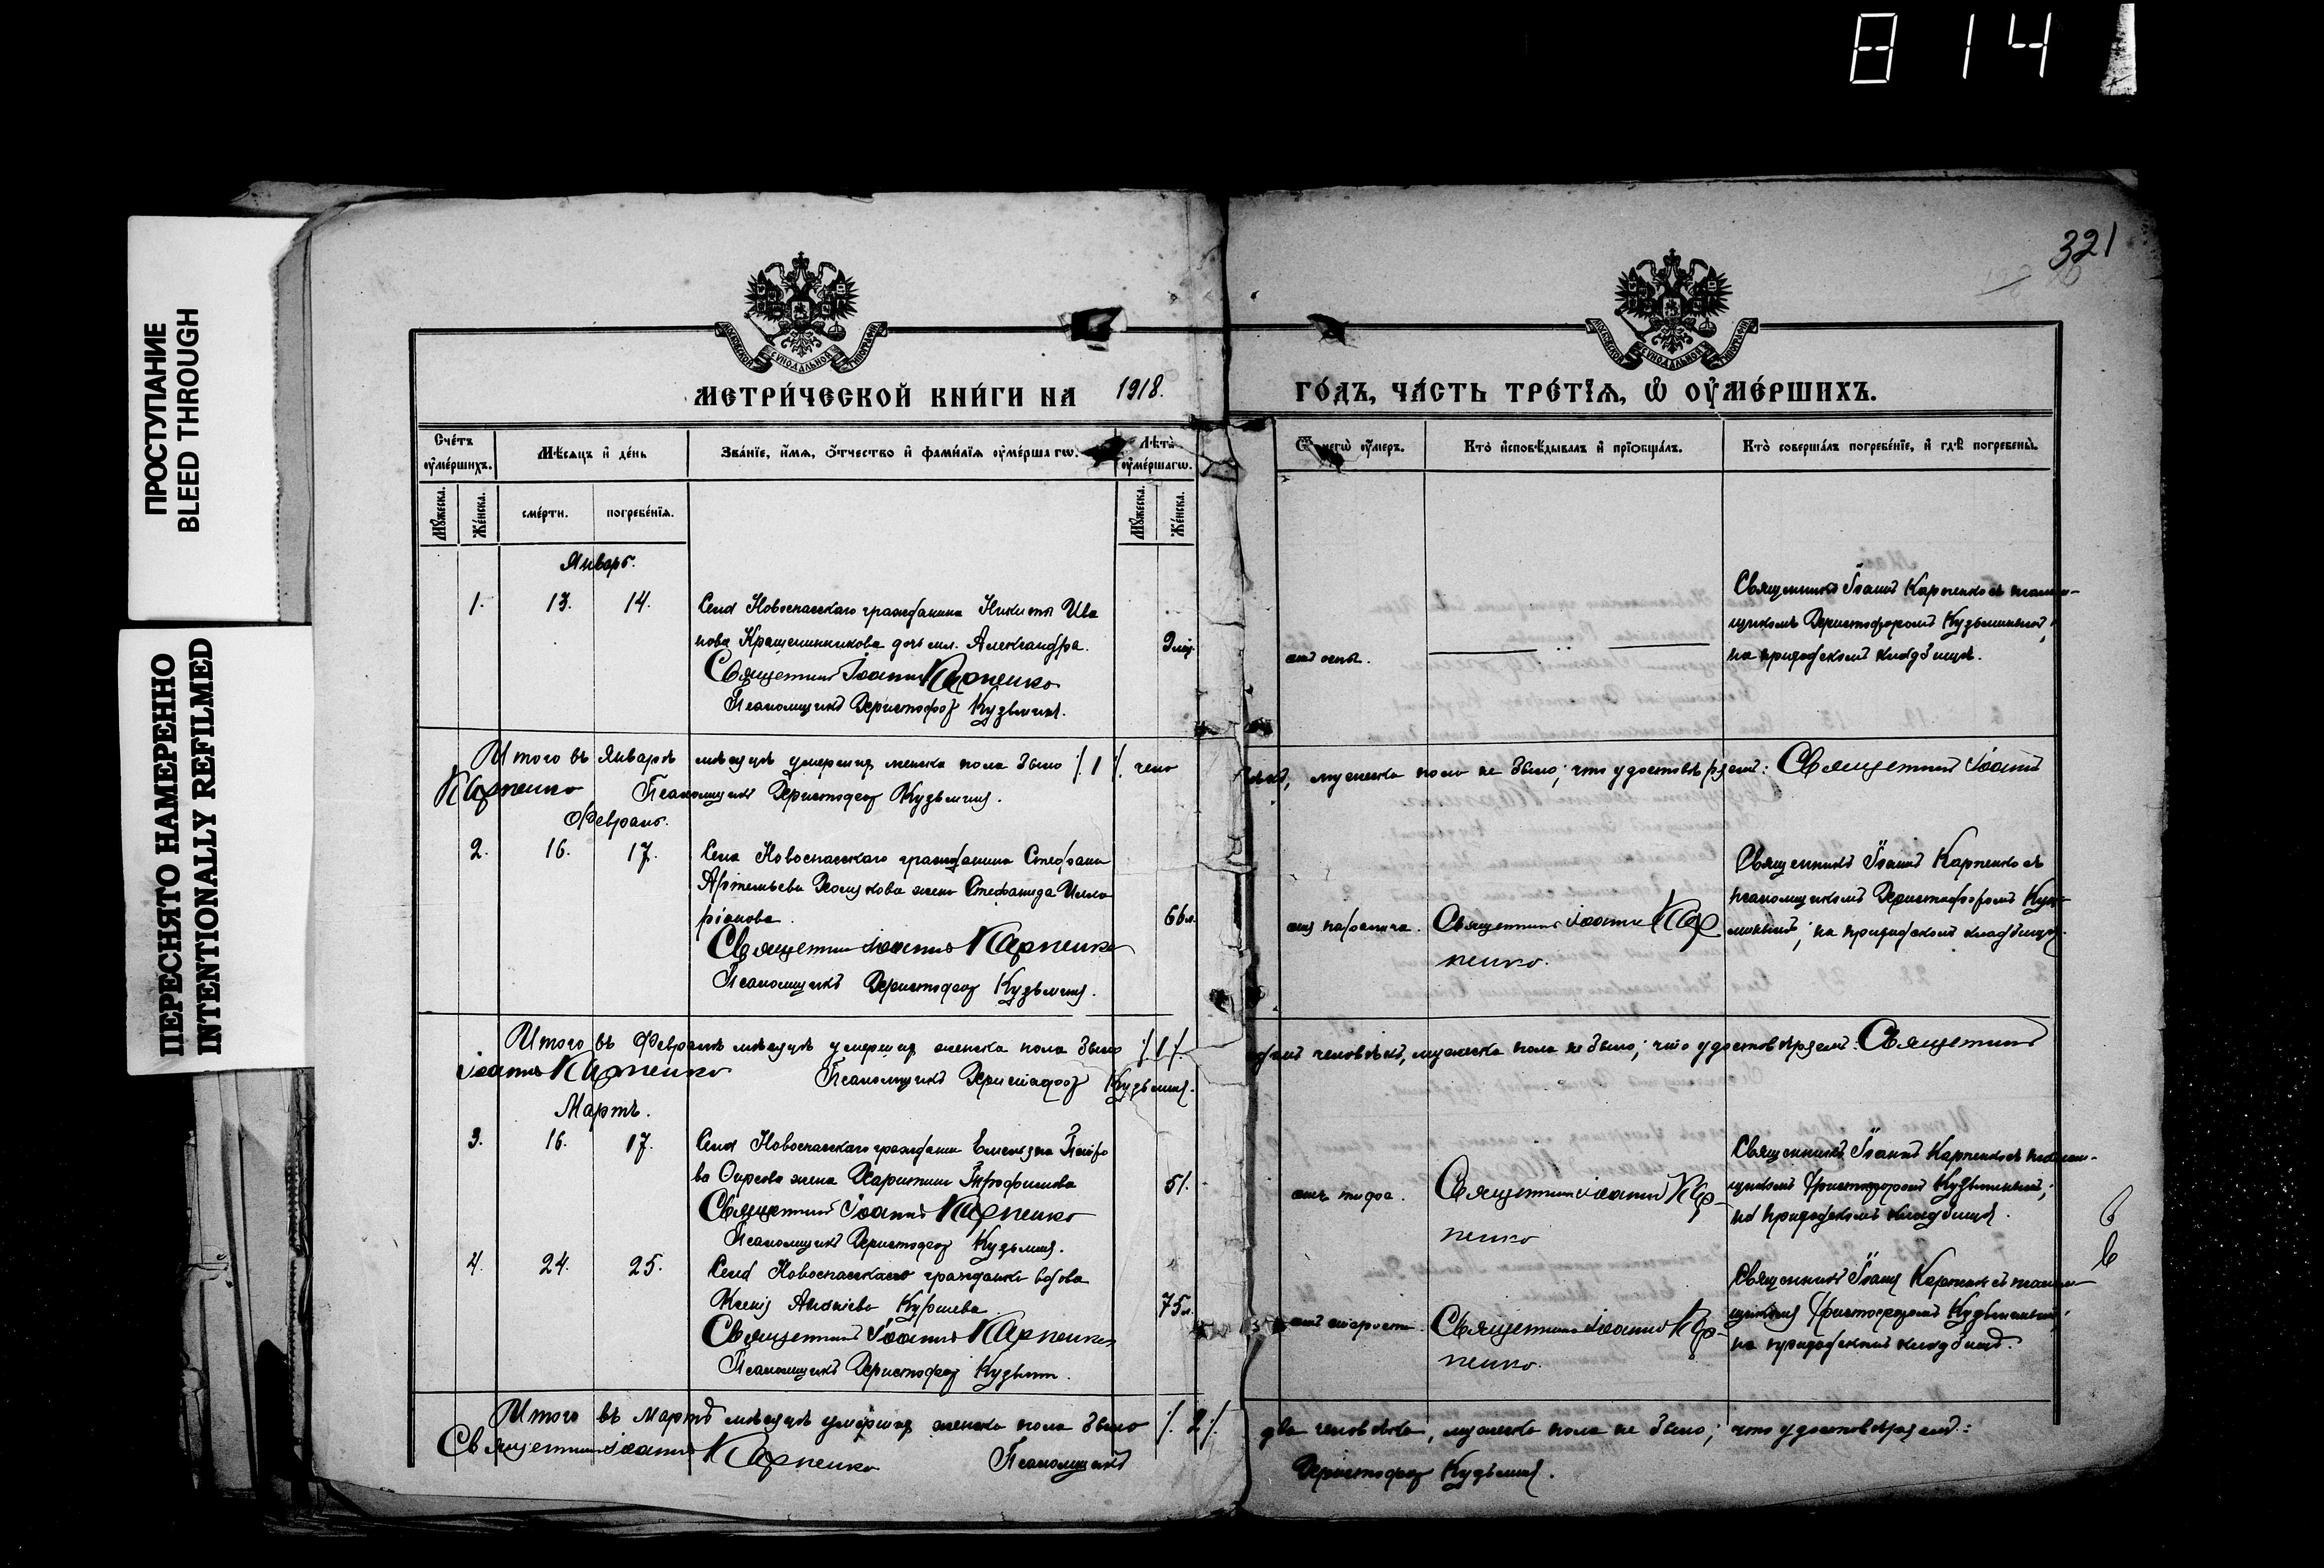 814
ПРОСТУПАНИЕ
BLEED THROUGH
ПЕРЕСНЯТО НАМЕРЕННО
INTENTIONALLY REFILMED
321
МОСКОВСКОЙ СѴНОДАЛЬНОЙ ТИПОГРАФІИ
МОСКОВСКОЙ СѴНОДАЛЬНОЙ ТИПОГРАФІИ
МЕТРИ́ЧЕСКОЙ КНИ́ГИ НА 1918. ГО́ДЪ, ЧА́СТЬ ТРЕ́ТЇѦ, Ѡ҆ ОУ҆МЕ́РШИХЪ.
Сче́тъ оу҆ме́ршихъ.
Мѣ́сяцъ и҆ де́нь
Зва́нїе, и҆́мѧ, ѻ҆́тчество и҆ фами́лїѧ оу҆ме́ршагѡ.
Лѣ́та оу҆ме́ршагѡ.
Ѿ чегѡ̀ оу҆́меръ.
Кто̀ и҆сповѣ́дывалъ и҆ прїѡбща́лъ.
Кто̀ соверша́лъ погребе́нїе, и҆ гдѣ̀ погребены̀.
Мꙋ́жеска.
Же́нска.
сме́рти.
погребе́нїѧ.
Мꙋ́жеска.
Же́нска.
Январь.
1. 13. 14. Села Новоспасскаго гражданина Никиты Ива
нова Крашенинникова дочь мл. Александра.
Священникъ Іоаннъ Карпенко
Псаломщикъ Христофоръ Кузьминъ.
2 мѣс.
отъ оспы.
Священникъ Іоаннъ Карпенко съ псалом-
щикомъ Христофоромъ Кузьминымъ;
на приходскомъ кладбищѣ.
Итого въ Январѣ мѣсяцѣ умершихъ женска пола было /.1/. чело
вѣкъ, мужеска пола не было; что удостовѣряемъ: Священникъ Іоаннъ
Карпенко Псаломщикъ Христофоръ Кузьминъ.
Февраль.
2. 16. 17. Села Новоспасскаго гражданина Стефана
Артемьева жена Стефанида Илла
ріонова.
Священникъ Іоаннъ Карпенко
Псаломщикъ Христофоръ Кузьминъ.
66 л.
отъ паралича.
Священникъ Іоаннъ Кар
пенко.
Священникъ Іоаннъ Карпенко съ
псаломщикомъ Христофоромъ Кузь-
минымъ; на приходскомъ кладбищѣ.
Итого въ Февралѣ мѣсяцѣ умершихъ женска пола было /.1/.
одинъ человѣкъ, мужеска пола не было; что удостовѣряемъ: Священникъ
Іоаннъ Карпенко Псаломщикъ Христофоръ Кузьминъ.
Мартъ.
3. 16. 17. Села Новоспасскаго гражданина Емельяна Петро
ва жена Харитина Трофимова
Священникъ Іоаннъ Карпенко
Псаломщикъ Христофоръ Кузьминъ.
51.
отъ тифа.
Священникъ Іоаннъ Кар-
пенко
Священникъ Іоаннъ Карпенко съ псалом-
щикомъ Христофоромъ Кузьминымъ;
на приходскомъ кладбищѣ.
4. 24. 25. Села Новоспасскаго гражданка вдова
Ксенія
Священникъ Іоаннъ Карпенко
Псаломщикъ Христофоръ Кузьминъ.
75 л.
отъ старости.
Священникъ Іоаннъ Кар-
пенко.
Священникъ Іоаннъ Карпенко съ псалом-
щикомъ Христофоромъ Кузьминымъ;
на приходскомъ кладбищѣ.
Итого въ Мартѣ мѣсяцѣ умершихъ женска пола было /.2/.
два человѣка, мужеска пола не было; что удостовѣряемъ:
Священникъ Іоаннъ Карпенко Псаломщикъ
Христофоръ Кузьминъ.